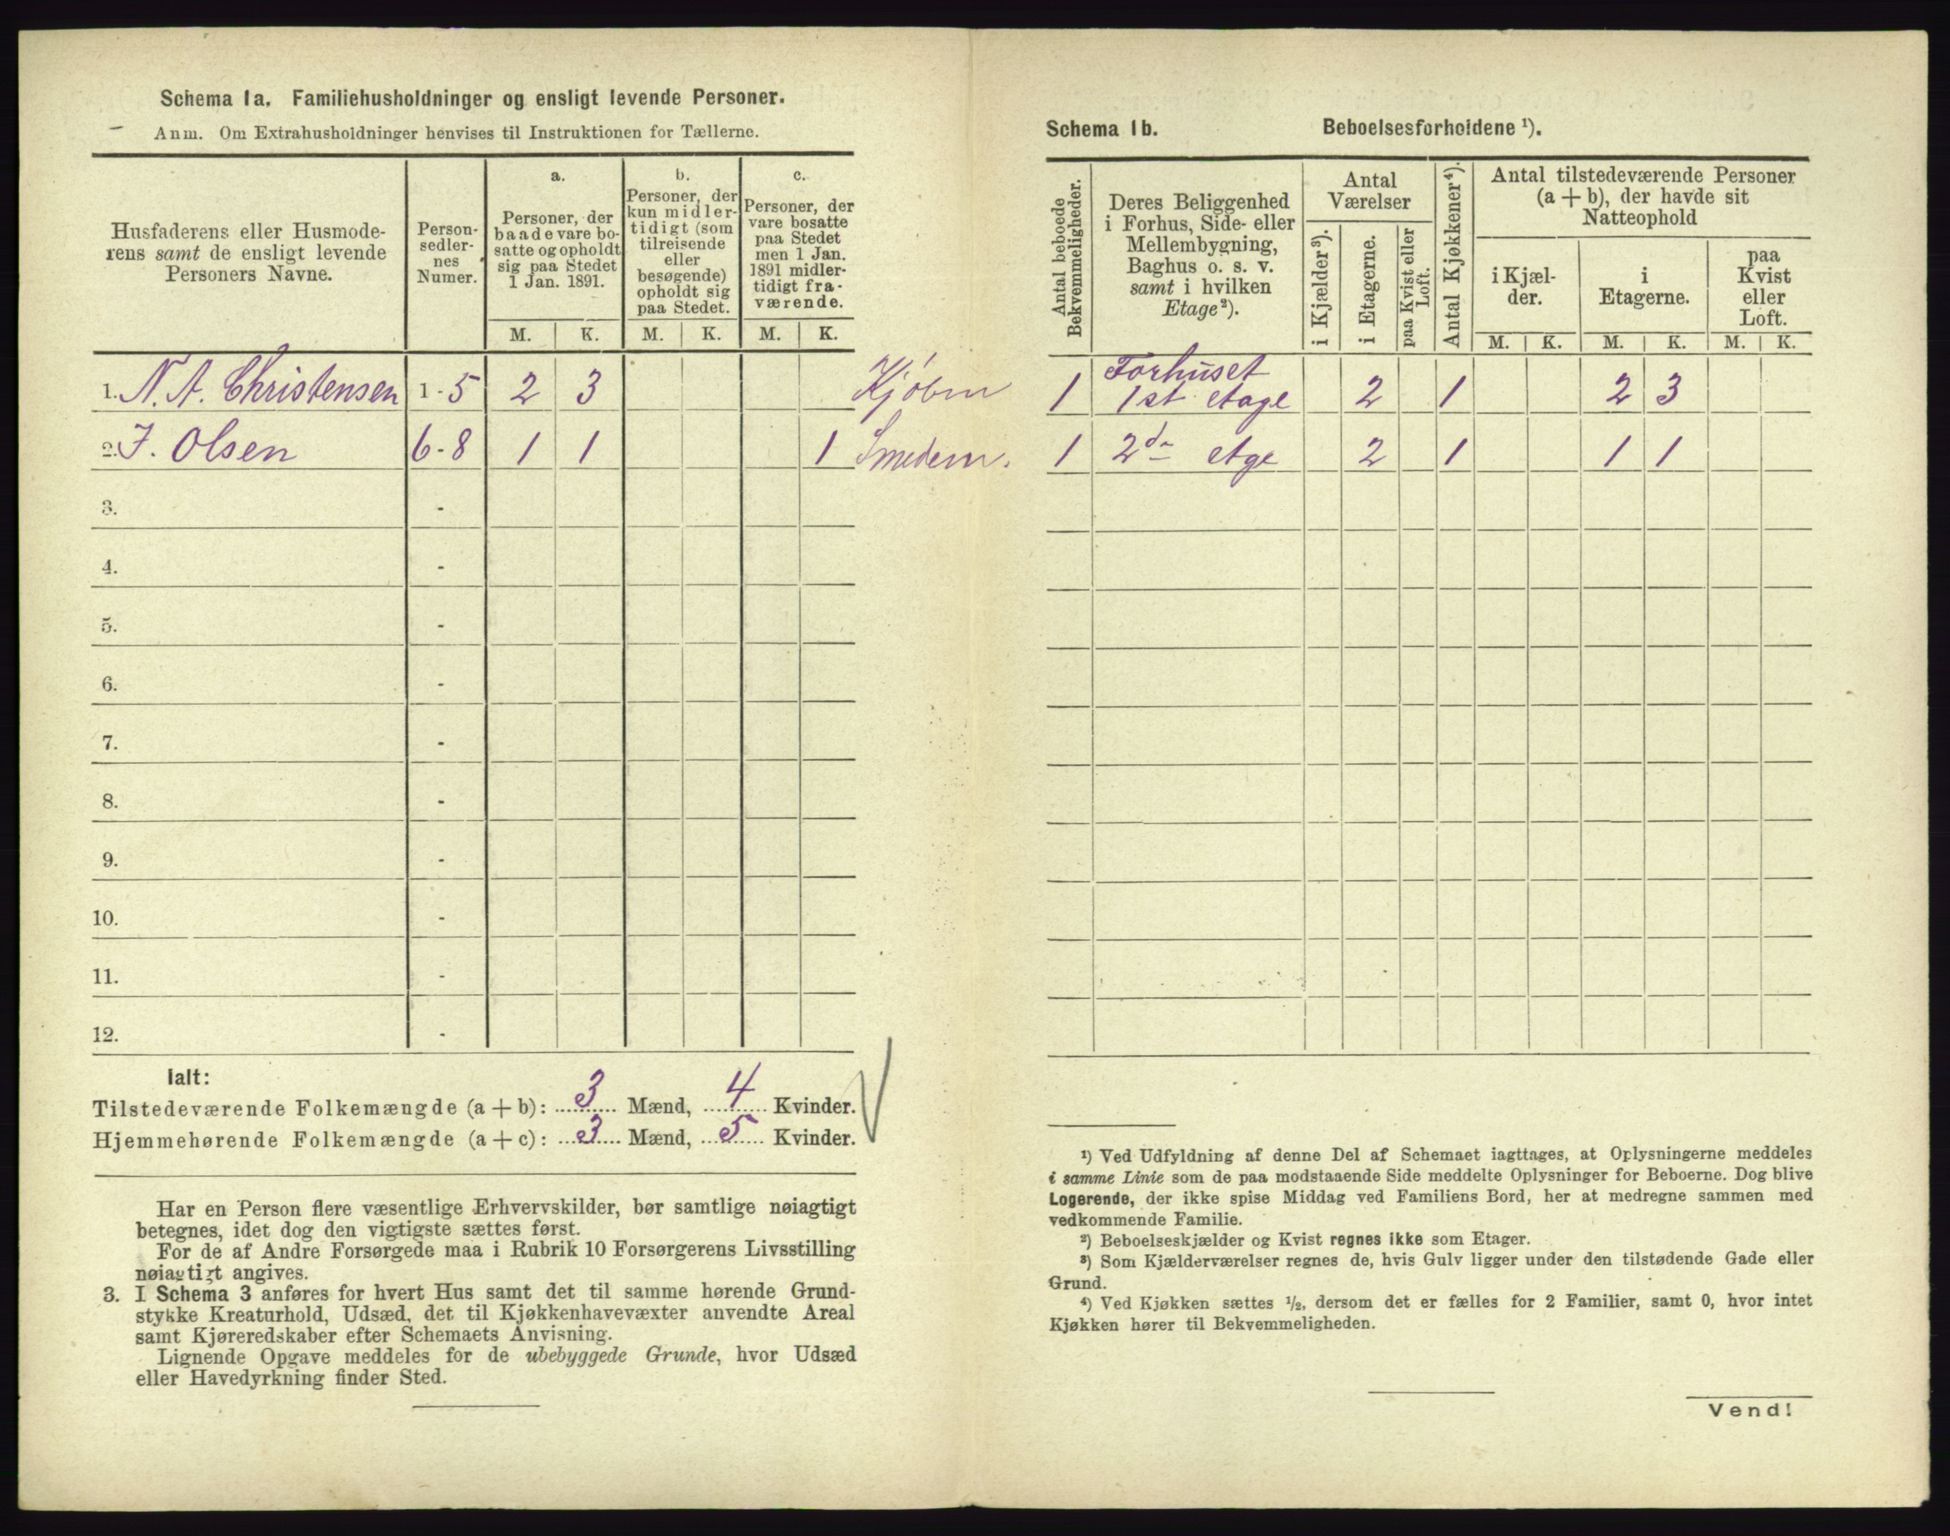 Schema 1a. Familiehusholdninger og ensligt levende Personer.
Anm. Om Extrahusholdninger henvises til Instruktionen for Tællerne.
Husfaderens eller Husmode-
rens samt de ensligt levende
Personers Navne.
Person-
sedler-
nes
Numer.
a.
Personer, der
baade vare bo-
satte og opholdt
sig paa Stedet
1 Jan. 1891.
b.
Personer, der
kun midler-
tidigt (som
tilreisende
eller
besøgende)
opholdt sig
paa Stedet.
c.
Personer, der
vare bosatte
paa Stedet
men 1 Jan.
1891 midler-
tidigt fra-
værende.
M. K. M. K. M. K.
1. N. A. Christensen 1-5 2 3 Kjøbm
2. J. Olsen 6-8 1 1 1 Smedem.
3. -
4. -
5. -
6. -
7. -
8. -
9. -
10. -
11. -
12. -
Ialt:
Tilstedeværende Folkemængde (a + b): 3 Mænd, 4 Kvinder.
Hjemmehørende Folkemængde (a + c): 3 Mænd, 5 Kvinder.
Har en Person flere væsentlige Erhvervskilder, bør samtlige nøiagtigt
betegnes, idet dog den vigtigste sættes først.
For de af Andre Forsørgede maa i Rubrik 10 Forsørgerens Livsstilling
nøiagtigt angives.
3. I Schema 3 anføres for hvert Hus samt det til samme hørende Grund-
stykke Kreaturhold, Udsæd, det til Kjøkkenhavevæxter anvendte Areal
samt Kjøreredskaber efter Schemaets Anvisning.
Lignende Opgave meddeles for de ubebyggede Grunde, hvor Udsæd
eller Havedyrkning finder Sted.
Schema 1b. Beboelsesforholdene ¹).
Antal beboede
Bekvemmeligheder.
Deres Beliggenhed
i Forhus, Side- eller
Mellembygning,
Baghus o. s. v.
samt i hvilken
Etage²).
Antal
Værelser
i Kjælder³).
i Etagerne.
paa Kvist eller
Loft.
Antal Kjøkkener⁴).
Antal tilstedeværende Personer
(a + b), der havde sit
Natteophold
i Kjæl-
der.
i
Etagerne.
paa
Kvist
eller
Loft.
M. K. M. K. M. K.
1 Forhuset
1st etage 2 1 2 3
1 2den etge 2 1 1 1
¹) Ved Udfyldning af denne Del af Schemaet iagttages, at Oplysningerne meddeles
i samme Linie som de paa modstaaende Side meddelte Oplysninger for Beboerne. Dog blive
Logerende, der ikke spise Middag ved Familiens Bord, her at medregne sammen med
vedkommende Familie.
²) Beboelseskjælder og Kvist regnes ikke som Etager.
³) Som Kjælderværelser regnes de, hvis Gulv ligger under den tilstødende Gade eller
Grund.
⁴) Ved Kjøkken sættes ½, dersom det er fælles for 2 Familier, samt 0, hvor intet
Kjøkken hører til Bekvemmeligheden.
Vend!